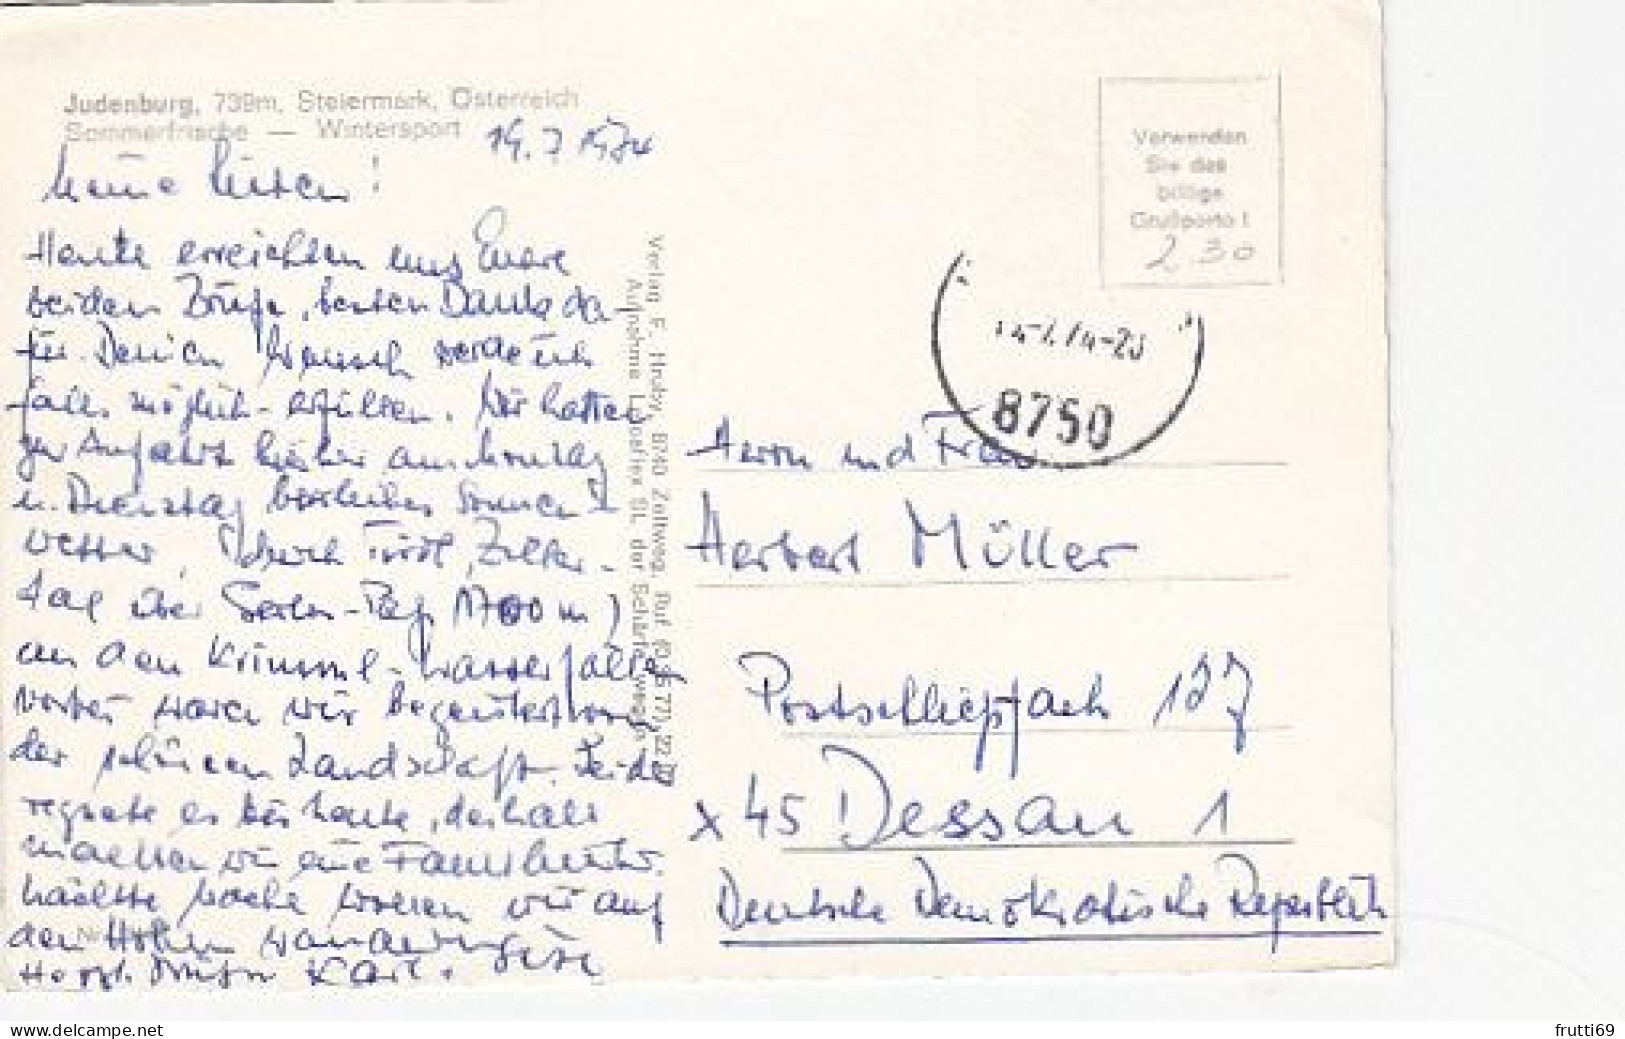 Judenburg, 739m, Steiermark, Österreich
Sommerfrische — Wintersport
19.7.1974
Meine Lieben!
Heute erreichten uns Euere
beiden Briefe, besten Dank da-
für. Deinen Wunsch werde ich
falls möglich - erfüllen. Wir hatten
zur Anfahrt hierher am Montag
u. Dienstag herrliches Sonnen-
wetter. Durch Tirol, Ziller-
tal über Gerlos-Paß 1700 m)
an den Krimml-Wasserfällen
vorbei waren wir begeistert von
der schönen Landschaft. Leider
regnete es bis heute, deshalb
machten wir eine
nächste Woche wollen wir auf
den Höhen wandern
Herzl. Grüße Karl.
Verlag F. Hruby, 8740 Zeltweg, Ruf (0 35 77) 22
Aufnahme
Verwenden
Sie das
billige
Grußporto!
2.30
8750
Herrn und Frau
Herbert Müller
Postschließfach 127
x 45 Dessau 1
Deutsche Demokratische Republik
frutti69
www.delcampe.net